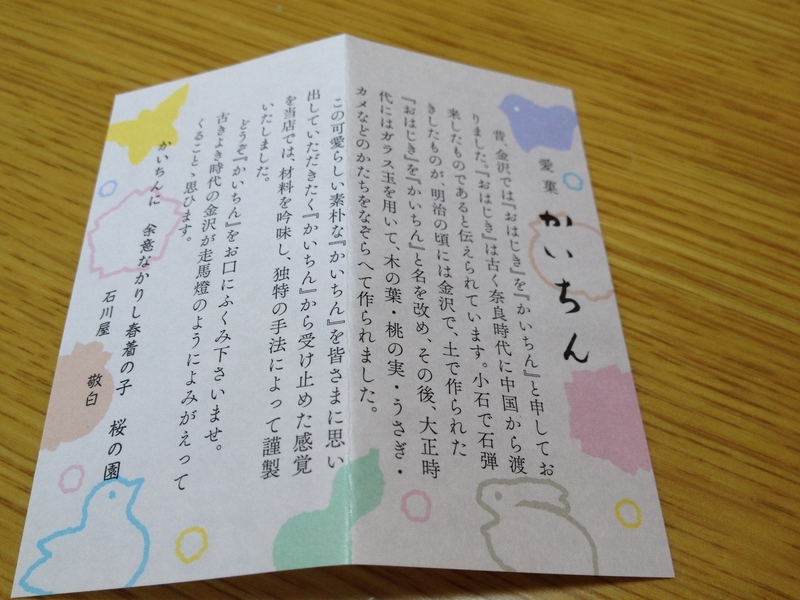 愛菓
かいちん
昔、金沢では『おはじき』を『かいちん』と申してお
りました。『おはじき』は古く奈良時代に中国から渡
来したものであると伝えられています。小石で石弾
きしたものが、明治の頃には金沢で、土で作られた
『おはじき』を『かいちん』と名を改め、その後、大正時
代にはガラス玉を用いて、木の葉・桃の実・うさぎ・
カメなどのかたちをなぞらへて作られました。
この可愛らしい素朴な『かいちん』を皆さまに思い
出していただきたく『かいちん』から受け止めた感覚
を当店では、材料を吟味し、独特の手法によって謹製
いたしました。
どうぞ『かいちん』をお口にふくみ下さいませ。
古きよき時代の金沢が走馬燈のようによみがえって
くることゝ思ひます。
かいちんに 余意なかりし春着の子 桜の園
石川屋 敬白